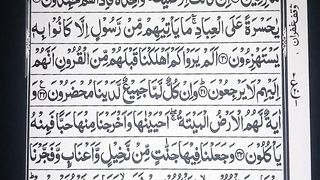 يٰحَسْرَةً عَلَى الْعِبَادِ ۚ مَا يَاْتِيْهِمْ مِّنْ رَّسُوْلٍ اِلَّا كَانُوْا بِهٖ
يَسْتَهْزِءُوْنَ ۝ اَلَمْ يَرَوْا كَمْ اَهْلَكْنَا قَبْلَهُمْ مِّنَ الْقُرُوْنِ اَنَّهُمْ
اِلَيْهِمْ لَا يَرْجِعُوْنَ ۝ وَاِنْ كُلٌّ لَّمَّا جَمِيْعٌ لَّدَيْنَا مُحْضَرُوْنَ ۝ وَ
اٰيَةٌ لَّهُمُ الْاَرْضُ الْمَيْتَةُ ۚ اَحْيَيْنٰهَا وَاَخْرَجْنَا مِنْهَا حَبًّا فَمِنْهُ
يَاْكُلُوْنَ ۝ وَجَعَلْنَا فِيْهَا جَنّٰتٍ مِّنْ نَّخِيْلٍ وَّاَعْنَابٍ وَّفَجَّرْنَا
وقف غفران